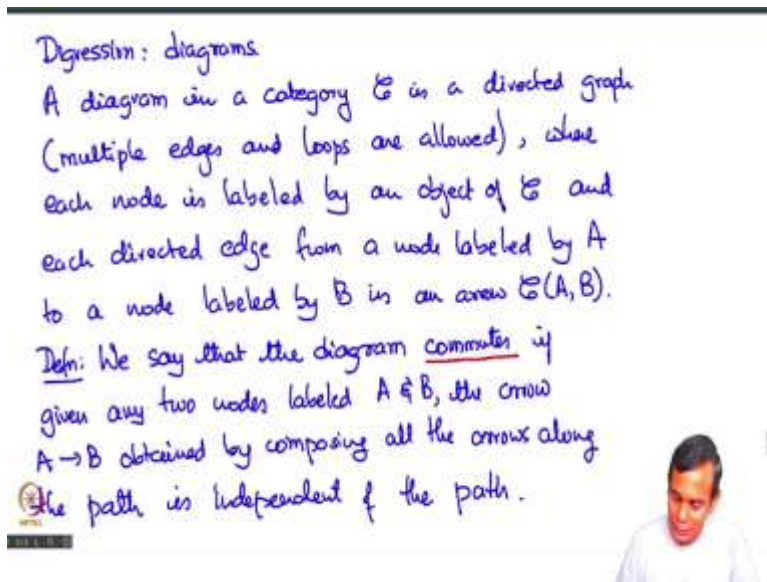 Digression: diagrams.
A diagram in a category 𝒞 is a directed graph
(multiple edges and loops are allowed), where
each node is labeled by an object of 𝒞 and
each directed edge from a node labeled by A
to a node labeled by B is an arrow 𝒞(A, B).
Defn: We say that the diagram commutes if
given any two nodes labeled A & B, the arrow
A → B obtained by composing all the arrows along
the path is independent of the path.
NPTEL